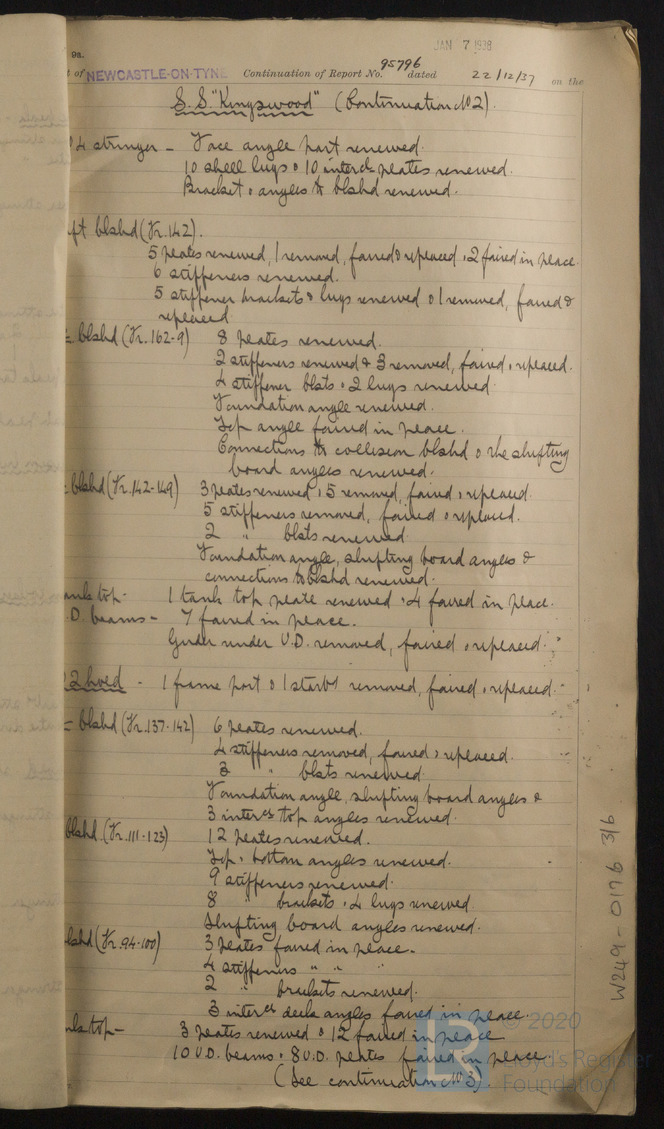 9a.
JAN 7 1938
t of NEWCASTLE-ON-TYNE Continuation of Report No. 95796 dated 22/12/37 on the
S.S. "Kingswood" (Continuation No 2).
4 stringer - Face angle part renewed.
10 shell lugs & 10 intercl plates renewed.
Bracket & angles to blkhd renewed.
ft blkhd (Fr. 142).
5 plates renewed, 1 removed, faired & replaced, 2 faired in place.
6 stiffeners renewed.
5 stiffener brackets & lugs renewed & 1 removed, faired &
replaced
blkhd (Fr. 162-9) 8 plates renewed.
2 stiffeners renewed & 3 removed, faired & replaced.
4 stiffener bkts & 2 lugs renewed
Foundation angle renewed.
Top angle faired in place.
Connections to collision blkhd & the shifting
board angles renewed.
blkhd (Fr. 142-149) 3 plates renewed & 5 removed, faired & replaced.
5 stiffeners removed, faired & replaced.
2 " bkts renewed
Foundation angle, shifting board angles &
connections to blkhd renewed.
tank top - 1 tank top plate renewed & 4 faired in place.
D. beams - 7 faired in place.
Girder under U.D. removed, faired & replaced.
2 hold - 1 frame port & 1 starbd removed, faired & replaced.
blkhd (Fr. 137-142) 6 plates renewed.
4 stiffeners removed, faired & replaced.
3 " bkts renewed
Foundation angle, shifting board angles &
3 intercl top angles renewed.
blkhd. (Fr. 111-123) 12 plates renewed.
Top & bottom angles renewed.
9 stiffeners renewed.
8 " brackets & 4 lugs renewed.
Shifting board angles renewed.
blkhd (Fr. 94-100) 3 plates faired in place.
4 stiffeners " " "
2 " brackets renewed.
3 intercl deck angles faired in place.
nk top - 3 plates renewed & 12 faired in place
10 U.D. beams & 8 U.D. plates faired in place.
(See continuation No 3)
W249-0176 3/6
© 2020
Lloyd's Register
Foundation